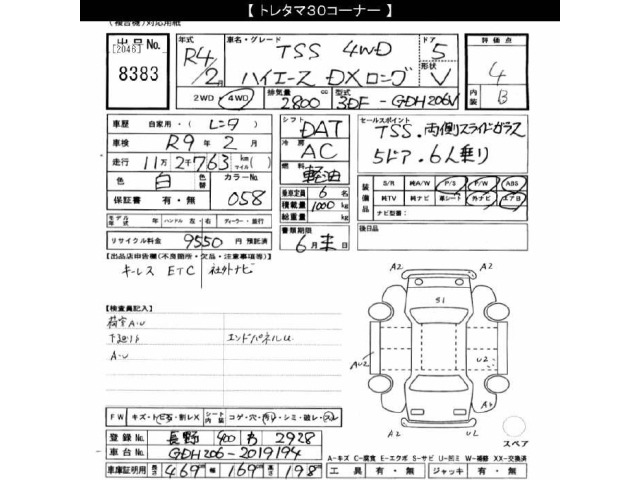 【 トレタマ30コーナー 】
(複合機)対応用紙
出品No.
[2046]
8383
年式
R4/2月
車名・グレード
TSS 4WD
ハイエース DXロング
ドア
5
形状
V
2WD 4WD
排気量
2800cc
型式
3DF-GDH206V
評価点
4
内装
B
車歴 自家用・(レンタ)
車検 R9年2月
走行 11万2千763km(マイル)
色 白 色替 カラーNo. 058
保証書 有・無
モデル年式 年 ハンドル 左・右 ディーラー・並行
リサイクル料金 9550円預託済
シフト DAT
冷房 AC
燃料 軽油
乗車定員 6名
積載量 1000kg
総重量 kg
書類期限
6月末日
セールスポイント
TSS.両側スライドガラス
5ドア.6人乗り
装備品
S/R 純A/W P/S P/W ABS
純TV 純ナビ 革シート 外ナビ エアB
ナビ型番:
後日品
【出品店申告欄(不良箇所・欠品・注意事項等)】
キーレス ETC 社外ナビ
【検査員記入】
荷室A・U
下廻りサ エンドパネルU
A・U
A2 A2
S1
AU2 U2
A2 A1
スペア
FW キズ・トビ石・割レX シート内張 コゲ・穴・汚レ・シミ・破レ・スレ
登録No. 長野 400 あ 2928
車台No. GDH206-2019194
車庫証明用 長さ 469cm 幅 169cm 高さ 198cm
A-キズ C-腐食 E-エクボ S-サビ U-凹ミ W-補修 XX-交換済
工具 有・無 ジャッキ 有・無